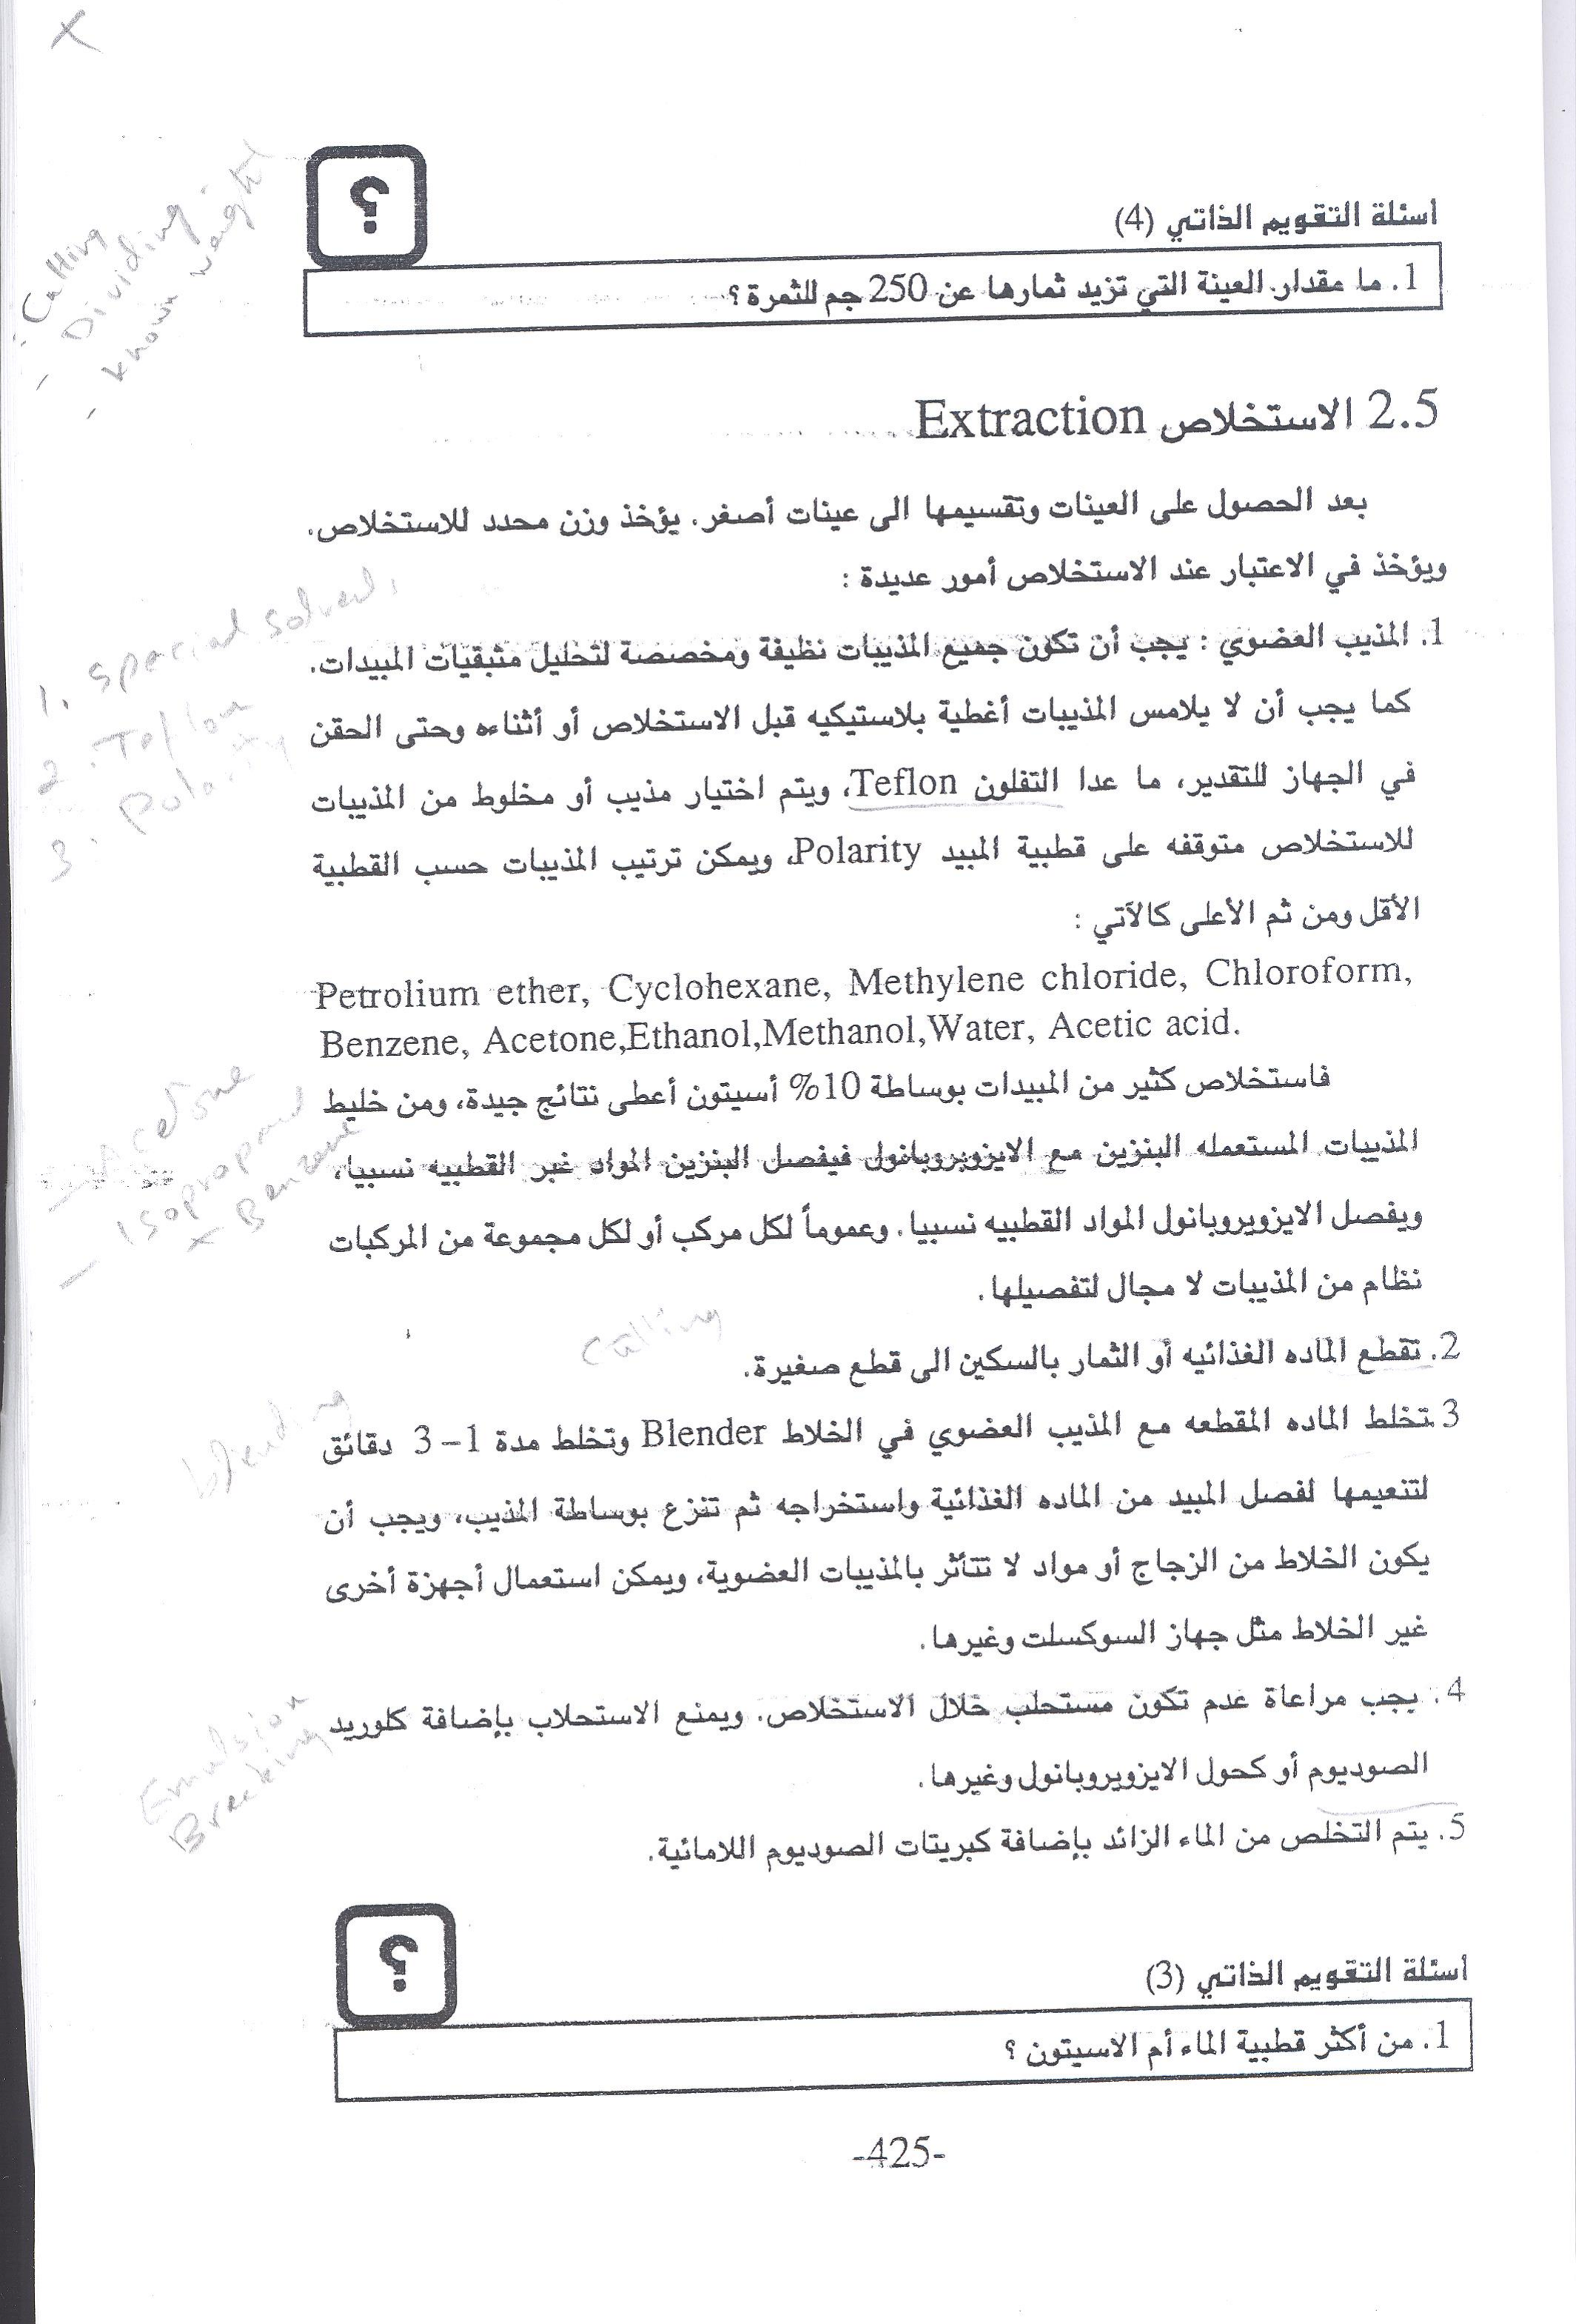 ؟
أسئلة التقويم الذاتي (4)
1. ما مقدار العينة التي تزيد ثمارها عن 250 جم للثمرة ؟
- Cutting
- Dividing
- known weight
2.5 الاستخلاص Extraction
بعد الحصول على العينات وتقسيمها الى عينات أصغر. يؤخذ وزن محدد للاستخلاص.
ويؤخذ في الاعتبار عند الاستخلاص أمور عديدة :
1. المذيب العضوي : يجب أن تكون جميع المذيبات نظيفة ومخصصة لتحليل متبقيات المبيدات.
كما يجب أن لا يلامس المذيبات أغطية بلاستيكيه قبل الاستخلاص أو أثناءه وحتى الحقن
في الجهاز للتقدير، ما عدا التفلون Teflon، ويتم اختيار مذيب أو مخلوط من المذيبات
للاستخلاص متوقفه على قطبية المبيد Polarity، ويمكن ترتيب المذيبات حسب القطبية
الأقل ومن ثم الأعلى كالآتي :
1. special solvent
2. Teflon
3. Polarity
Petrolium ether, Cyclohexane, Methylene chloride, Chloroform,
Benzene, Acetone,Ethanol,Methanol,Water, Acetic acid.
فاستخلاص كثير من المبيدات بوساطة 10% أسيتون أعطى نتائج جيدة، ومن خليط
المذيبات المستعمله البنزين مع الايزوبروبانول فيفصل البنزين المواد غير القطبيه نسبيا،
ويفصل الايزوبروبانول المواد القطبيه نسبيا. وعموماً لكل مركب أو لكل مجموعة من المركبات
نظام من المذيبات لا مجال لتفصيلها.
- Acetone
- Isopropanol
+ Benzene
cutting
2. تقطع الماده الغذائيه أو الثمار بالسكين الى قطع صغيرة.
3.تخلط الماده المقطعه مع المذيب العضوي في الخلاط Blender وتخلط مدة 1– 3 دقائق
لتنعيمها لفصل المبيد من الماده الغذائية واستخراجه ثم تنزع بوساطة المذيب، ويجب أن
يكون الخلاط من الزجاج أو مواد لا تتأثر بالمذيبات العضوية، ويمكن استعمال أجهزة أخرى
غير الخلاط مثل جهاز السوكسلت وغيرها.
blending
4. يجب مراعاة عدم تكون مستحلب خلال الاستخلاص. ويمنع الاستحلاب بإضافة كلوريد
الصوديوم أو كحول الايزوبروبانول وغيرها.
Emulsion
Breaking
5. يتم التخلص من الماء الزائد بإضافة كبريتات الصوديوم اللامائية.
؟
أسئلة التقويم الذاتي (3)
1. من أكثر قطبية الماء أم الاسيتون ؟
-425-